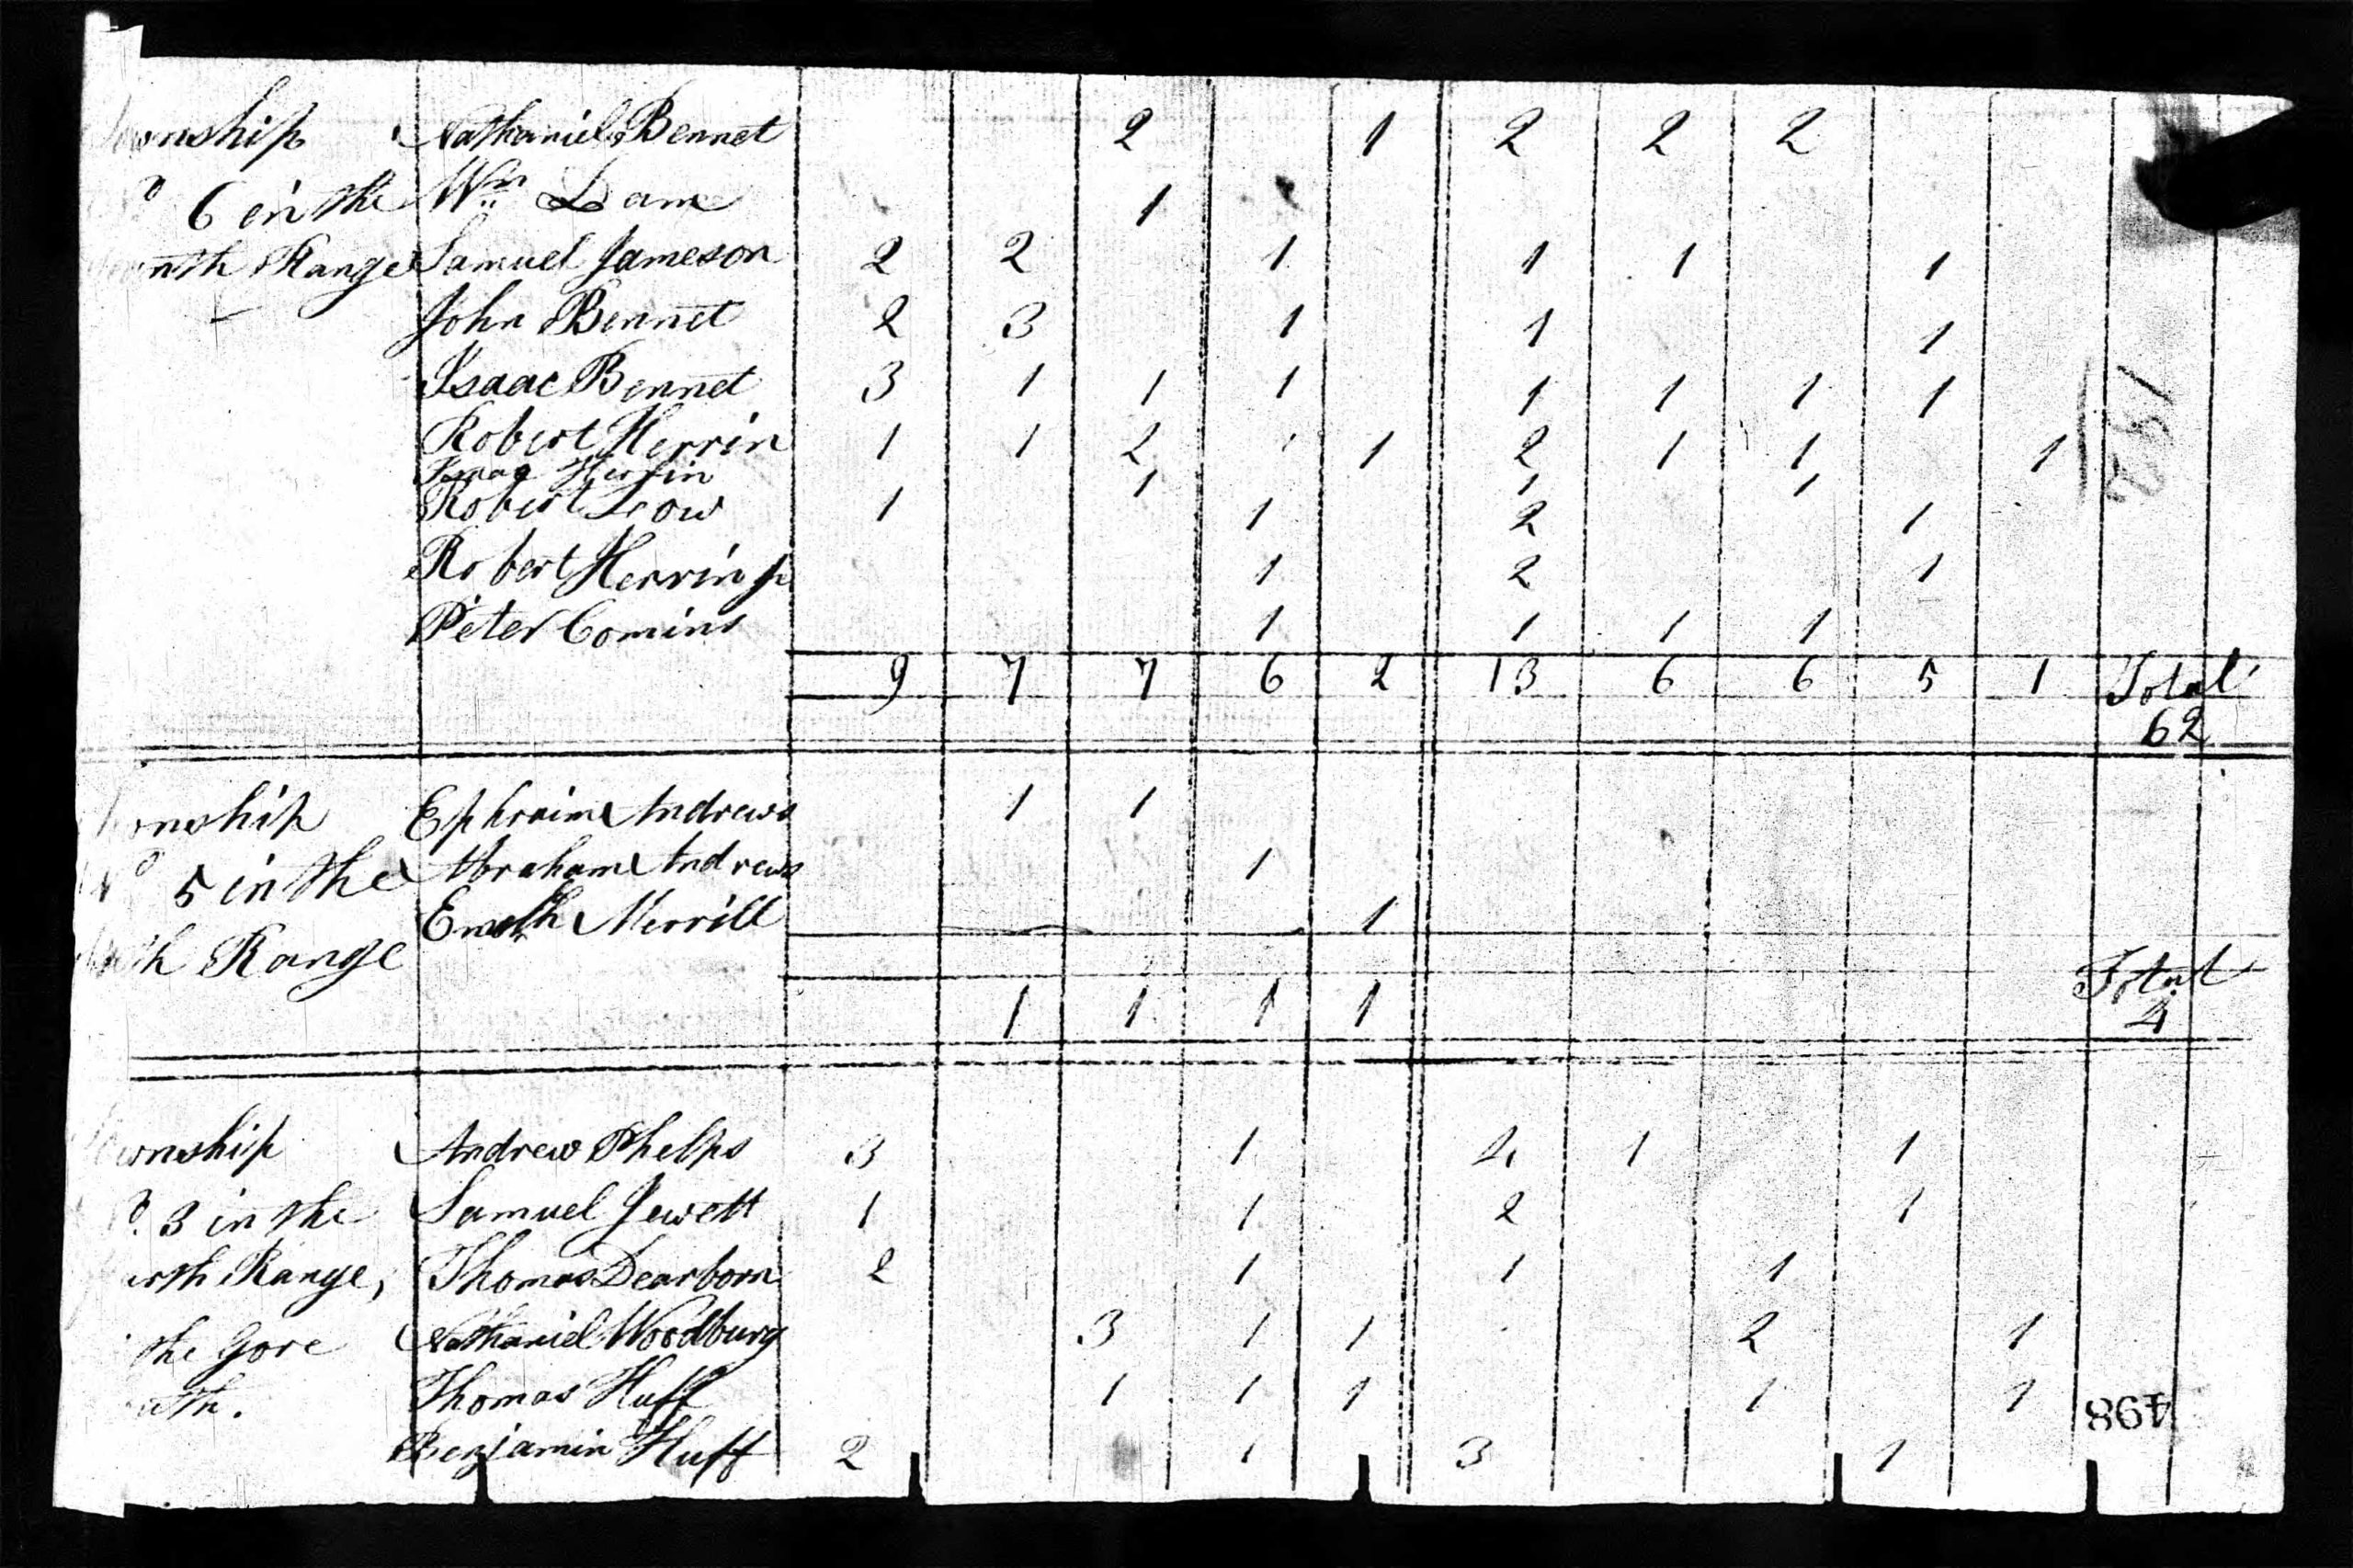 Township Nathaniel Bennet 2 1 2 2 2
No 6 in the Wm Lam 1
Range Samuel Jameson 2 2 1 1 1 1
John Bennet 2 3 1 1 1
Isaac Bennet 3 1 1 1 1 1 1 1
Robert Herrin 1 1 2 1 2 1 1 1
Isaac Herrin 1 1 1
Robert Leow 1 1 2 1
Robert Herrin Jr 1 2 1
Peter Comins 1 1 1 1
9 7 7 6 2 13 6 6 5 1 Total
62
182
Township Ephraim Andrews 1 1
No 5 in the Abraham Andrews 1
Enoch Merrill 1
Range
Total
1 1 1 1 4
Township Andrew Phelps 3 1 4 1 1
No. 3 in the Samuel Jewett 1 1 2 1
Range, Thomas Dearborn 2 1 1 1
the Gore Nathaniel Woodbury 3 1 1 2 1
Thomas Huff 1 1 1 1 1
498
Benjamin Huff 2 1 3 1